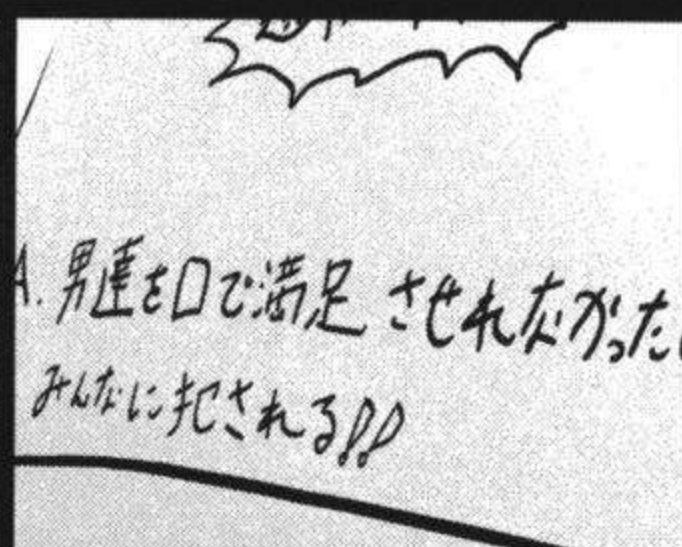 A.男達を口で満足させれなかった
みんなに犯される!!